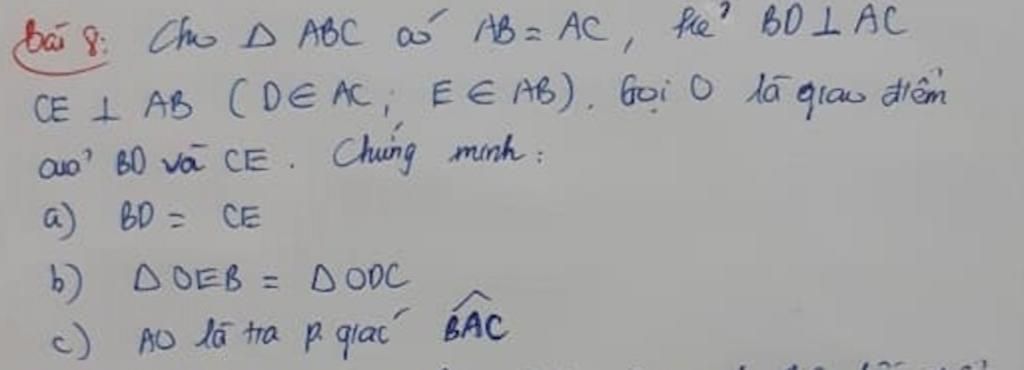 Bài 8: Cho Δ ABC có AB = AC, kẻ BD ⊥ AC
CE ⊥ AB (D ∈ AC; E ∈ AB). Gọi O là giao điểm
của BD và CE. Chứng minh:
a) BD = CE
b) Δ OEB = Δ ODC
c) AO là tia p. giác \widehat{BAC}